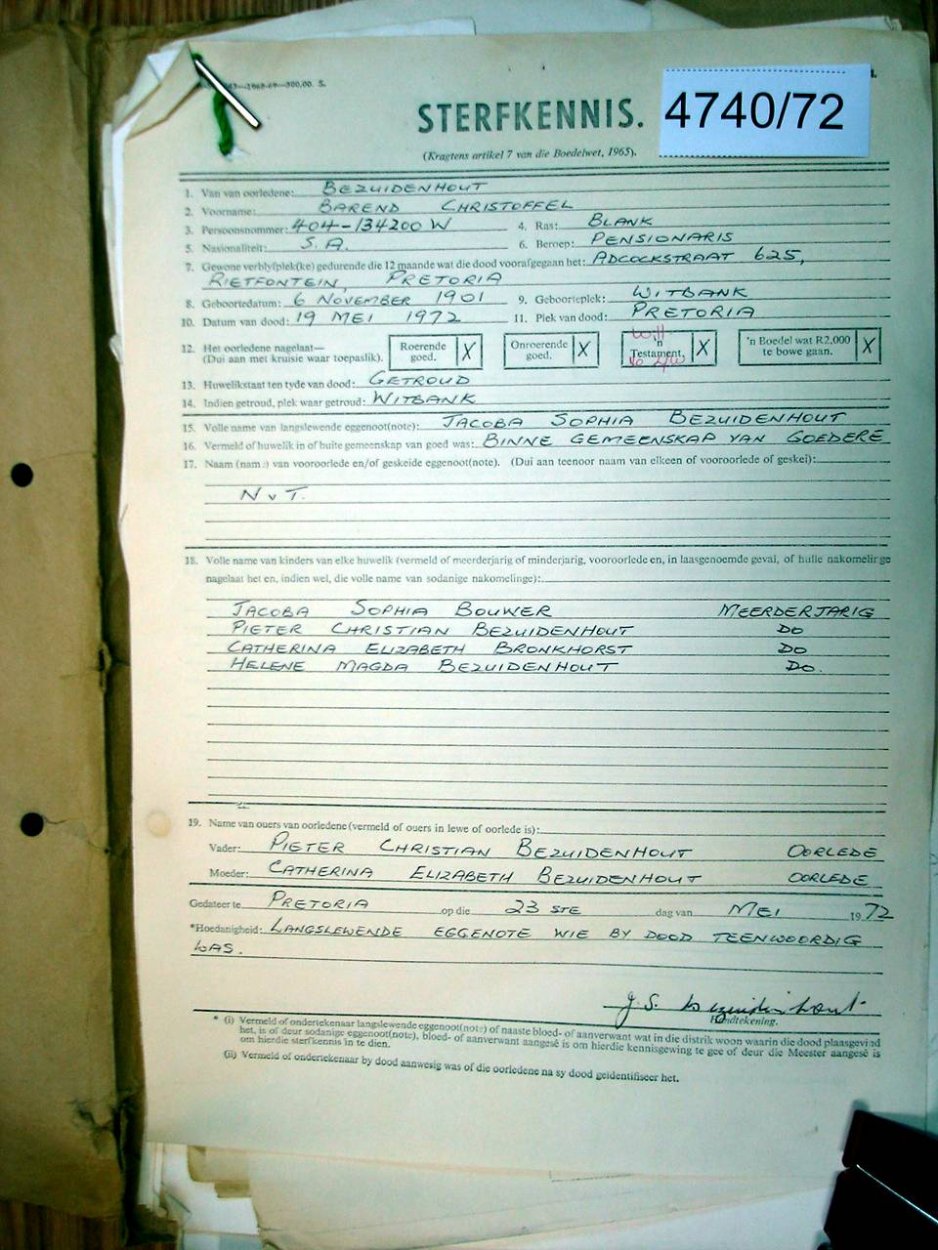 4740/72
STERFKENNIS.
(Kragtens artikel 7 van die Boedelwet, 1965).
1. Van van oorledene: BEZUIDENHOUT
2. Voorname: BAREND CHRISTOFFEL
3. Persoonsnommer: 404-134200 W 4. Ras: BLANK
5. Nasionaliteit: S.A. 6. Beroep: PENSIONARIS
7. Gewone verblyfplek(ke) gedurende die 12 maande wat die dood voorafgegaan het: ADCOCKSTRAAT 625,
RIETFONTEIN, PRETORIA
8. Geboortedatum: 6 NOVEMBER 1901 9. Geboorteplek: WITBANK
10. Datum van dood: 19 MEI 1972 11. Plek van dood: PRETORIA
12. Het oorledene nagelaat— Roerende goed. X Onroerende goed. X Will 'n Testament, X 'n Boedel wat R2,000 te bowe gaan. X
(Dui aan met kruisie waar toepaslik).
13. Huwelikstaat ten tyde van dood: GETROUD
14. Indien getroud, plek waar getroud: WITBANK
15. Volle name van langslewende eggenoot(note): JACOBA SOPHIA BEZUIDENHOUT
16. Vermeld of huwelik in of buite gemeenskap van goed was: BINNE GEMEENSKAP VAN GOEDERE
17. Naam (name) van vooroorlede en/of geskeide eggenoot(note). (Dui aan teenoor naam van elkeen of vooroorlede of geskei):
N v T.
18. Volle name van kinders van elke huwelik (vermeld of meerderjarig of minderjarig, vooroorlede en, in laasgenoemde geval, of hulle nakomelinge
nagelaat het en, indien wel, die volle name van sodanige nakomelinge):
JACOBA SOPHIA BOUWER MEERDERJARIG
PIETER CHRISTIAN BEZUIDENHOUT DO
CATHERINA ELIZABETH BRONKHORST DO
HELENE MAGDA BEZUIDENHOUT DO.
19. Name van ouers van oorledene (vermeld of ouers in lewe of oorlede is):
Vader: PIETER CHRISTIAN BEZUIDENHOUT OORLEDE
Moeder: CATHERINA ELIZABETH BEZUIDENHOUT OORLEDE
Gedateer te PRETORIA op die 23 STE dag van MEI 1972
*Hoedanigheid: LANGSLEWENDE EGGENOTE WIE BY DOOD TEENWOORDIG
WAS.
J.S. Bezuidenhout
Handtekening.
* (i) Vermeld of ondertekenaar langslewende eggenoot(note) of naaste bloed- of aanverwant wat in die distrik woon waarin die dood plaasgevind
het, is of deur sodanige eggenoot(note), bloed- of aanverwant aangesê is om hierdie kennisgewing te gee of deur die Meester aangesê is
om hierdie sterfkennis in te dien.
(ii) Vermeld of ondertekenaar by dood aanwesig was of die oorledene na sy dood geïdentifiseer het.